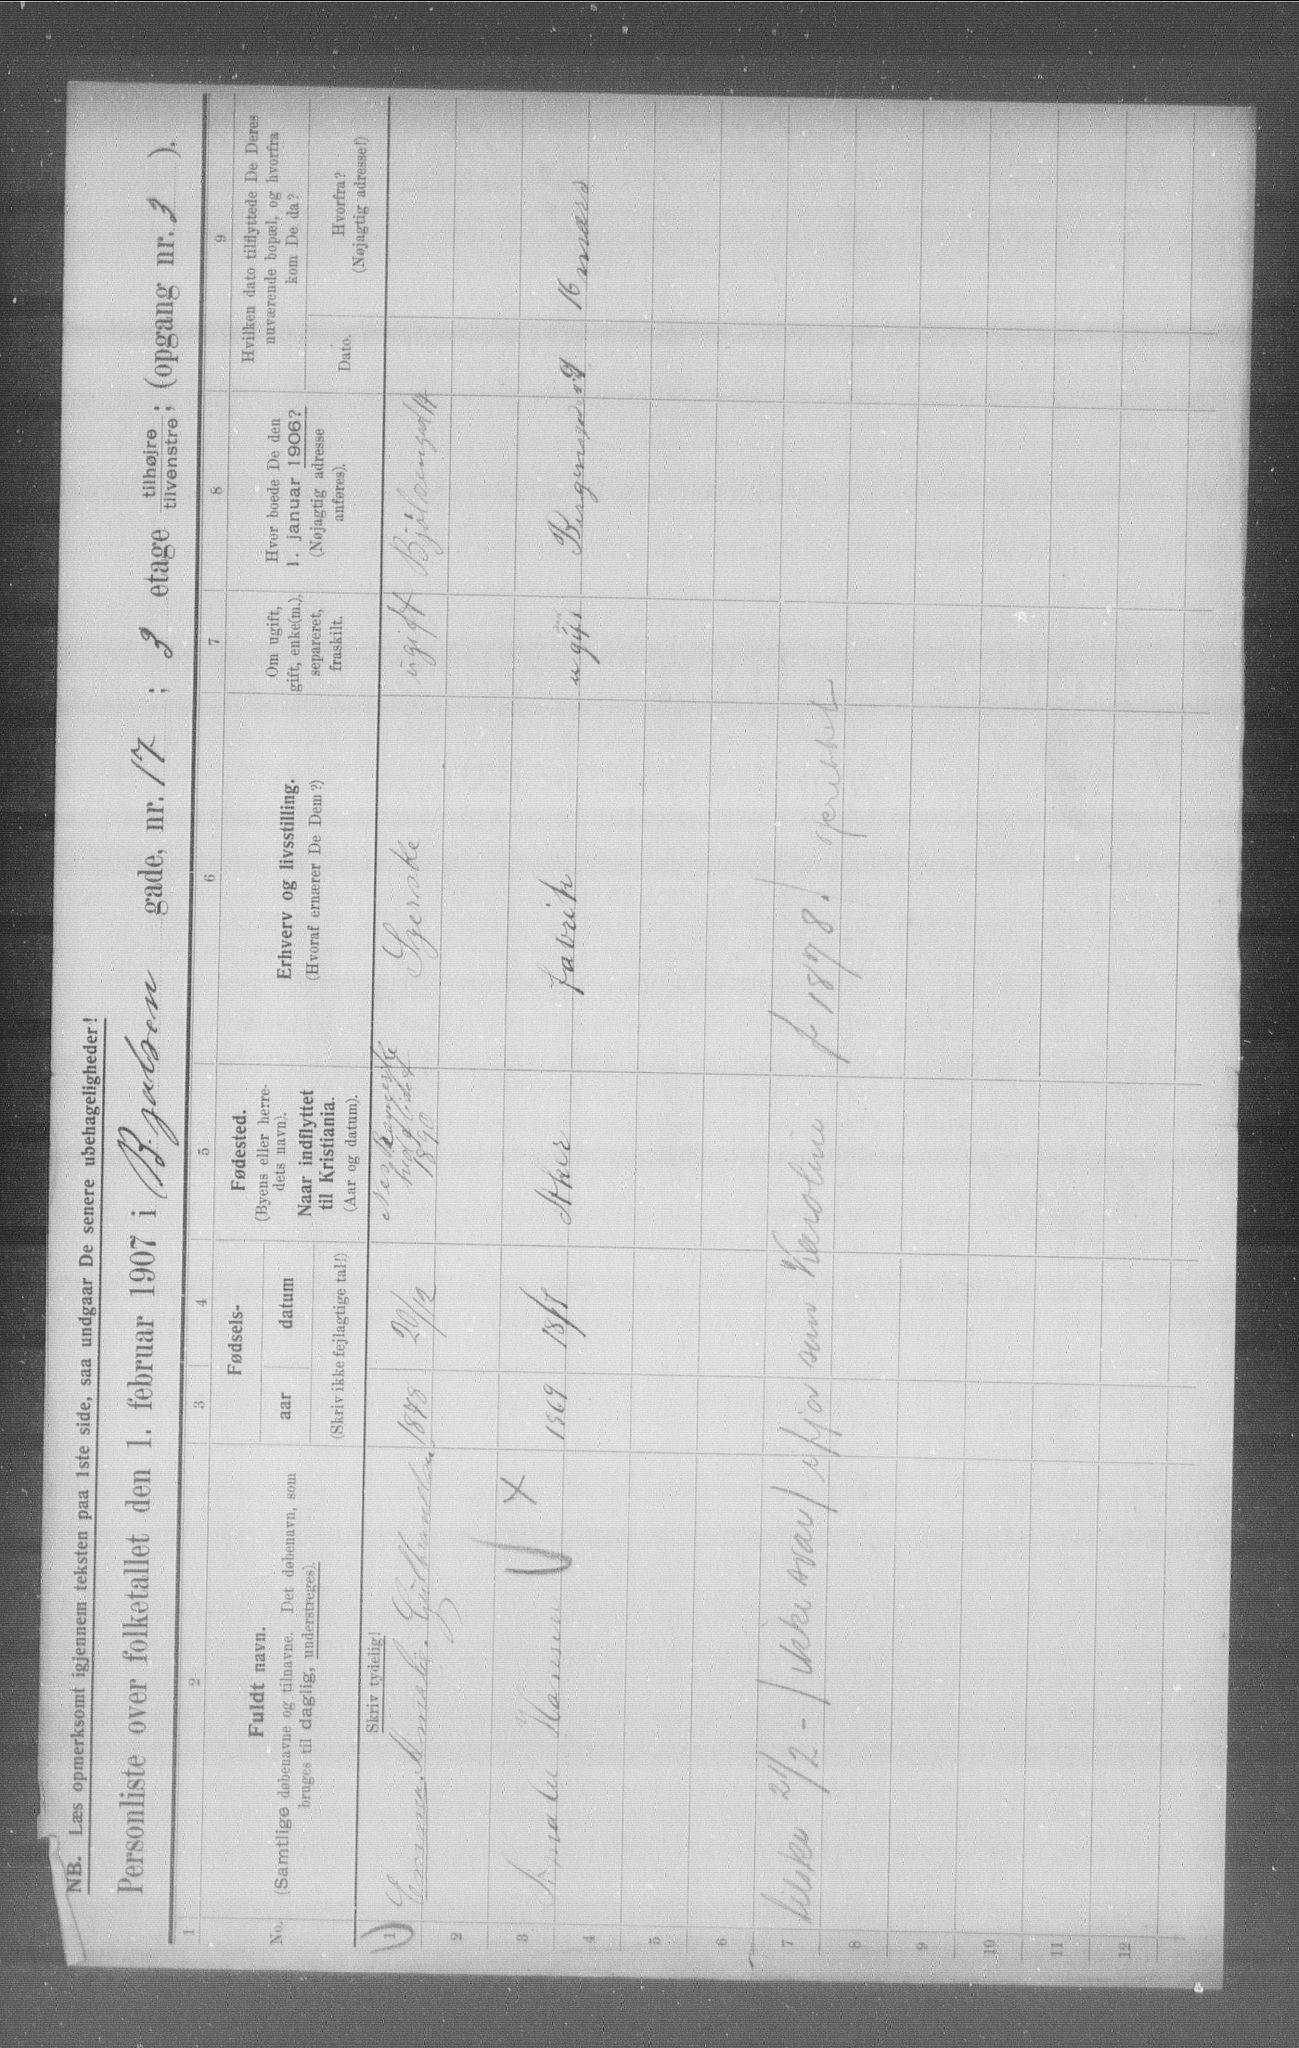 NB. Læs opmerksomt igjennem teksten paa 1ste side, saa undgaar De senere ubehageligheder!
Personliste over folketallet den 1. februar 1907 i Bjølsen gade, nr. 17 ; 3 etage tilhøjre / tilvenstre ; (opgang nr. 3 ).
1 2 3 4 5 6 7 8 9
No.
Fuldt navn.
(Samtlige døbenavne og tilnavne. Det døbenavn, som
bruges til daglig, understreges).
Fødsels-
aar datum
(Skriv ikke fejlagtige tal!)
Fødested.
(Byens eller herre-
dets navn).
Naar indflyttet
til Kristiania.
(Aar og datum).
Erhverv og livsstilling.
(Hvoraf ernærer De Dem?)
Om ugift,
gift, enke(m.),
separeret,
fraskilt.
Hvor boede De den
1. januar 1906?
(Nøjagtig adresse
anføres).
Hvilken dato tilflyttede De Deres
nuværende bopæl, og hvorfra
kom De da?
Dato.
Hvorfra?
(Nøjagtig adresse!)
Skriv tydelig!
1 Emma Amalie 1848 1890 Syerske ugift 14
2
3
4 Hansen 1869 Aker fabrik ugift 16 mars
5
6
7 tilsku 21/2 - ikke svar som Karoline f 1878
8
9
10
11
12